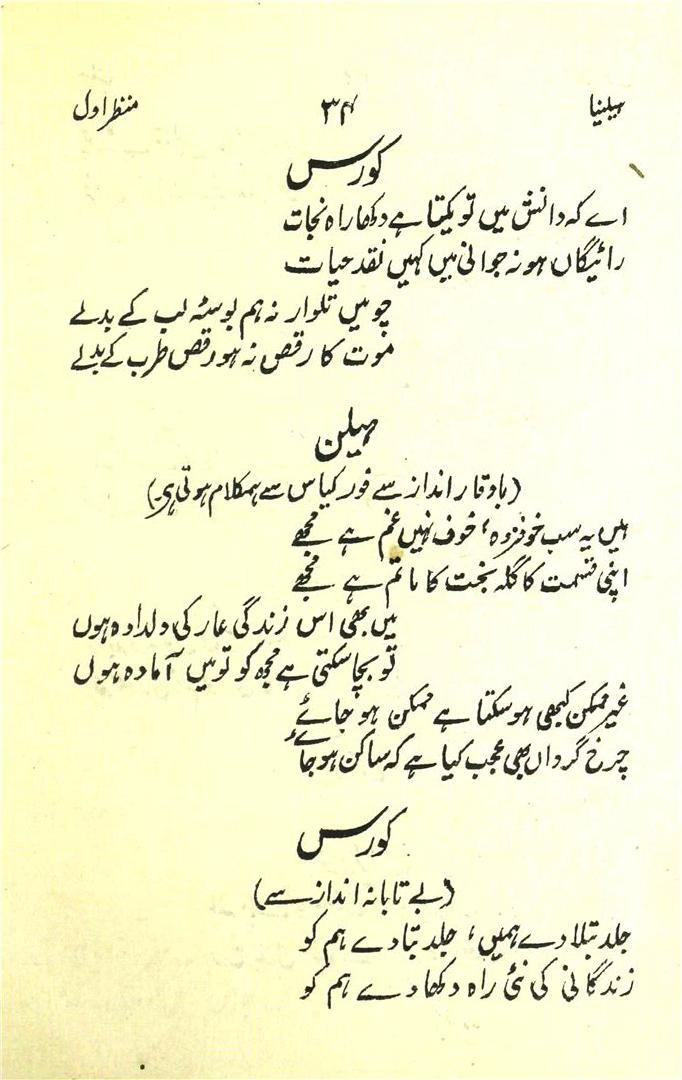 ہیلنیا ۳۴ منظر اول
کورس
اے کہ دانش میں تو یکتا ہے دکھا راہ نجات
رائیگاں ہو نہ جوانی میں کہیں نقد حیات
چومیں تلوار نہ ہم بوسۂ لب کے بدلے
موت کا رقص نہ ہو رقص طرب کے بدلے
ہیلن
(باوقار انداز سے فورکیاس سے ہمکلام ہوتی ہے)
ہیں یہ سب خوفزدہ، خوف نہیں غم ہے مجھے
اپنی قسمت کا گلہ بخت کا ماتم ہے مجھے
میں بھی اس زندگی عار کی دلدادہ ہوں
تو بچا سکتی ہے مجھ کو تو میں آمادہ ہوں
غیر ممکن کبھی ہو سکتا ہے ممکن ہو جائے
چرخ گرداں بھی عجب کیا ہے کہ ساکن ہو جائے
کورس
(بے تابانہ انداز سے)
جلد بتلا دے ہمیں، جلد بتا دے ہم کو
زندگانی کی نئی راہ دکھا دے ہم کو